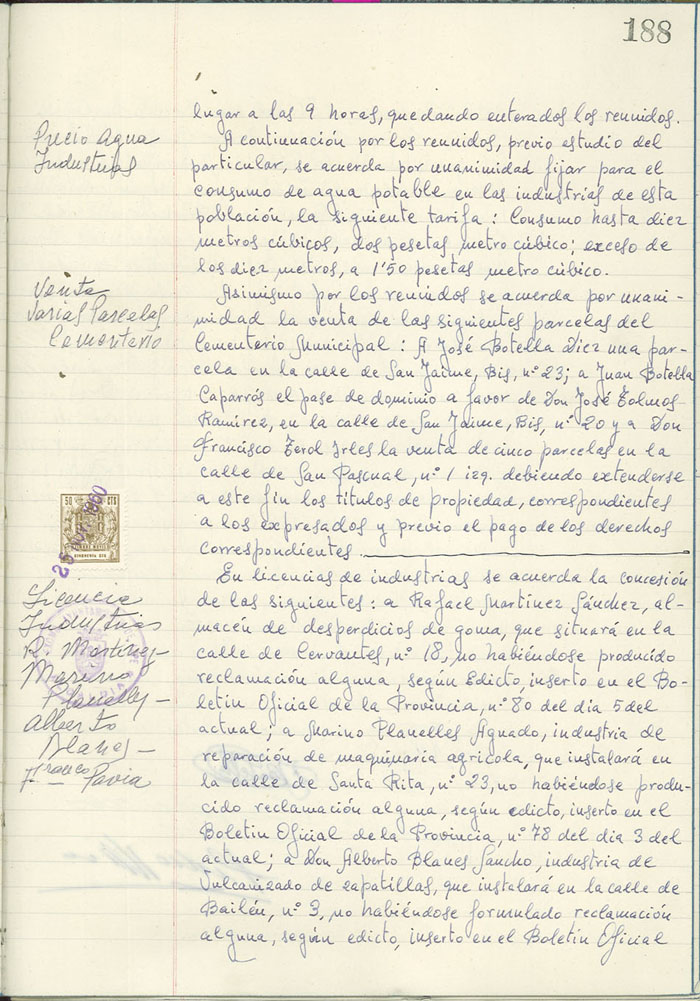 188
lugar a las 9 horas, quedando enterados los reunidos.
Precio Agua
Industrias
A continuación por los reunidos, previo estudio del
particular, se acuerda por unanimidad fijar para el
consumo de agua potable en las industrias de esta
población, la siguiente tarifa: Consumo hasta diez
metros cúbicos, dos pesetas metro cúbico; exceso de
los diez metros, a 1'50 pesetas metro cúbico.
Venta
Varias Parcelas
Cementerio
Asimismo por los reunidos se acuerda por unani-
midad la venta de las siguientes parcelas del
Cementerio Municipal: A José Botella Diez una par-
cela en la calle de San Jaime, Bis, nº 23; a Juan Botella
Caparrós el pase de dominio a favor de Don José Tolmos
Ramirez, en la calle de San Jaime, Bis, nº 20 y a Don
Francisco Terol Irles la venta de cinco parcelas en la
calle de San Pascual, nº 1 izq. debiendo extenderse
a este fin los titulos de propiedad, correspondientes
a los expresados y previo el pago de los derechos
correspondientes.
50 CTS
1960
Licencia
Industrias
R. Martinez-
Marino
Planelles-
Alberto
Blanes-
Franco Pavia
En licencias de industrias se acuerda la concesión
de las siguientes: a Rafael Martinez Sánchez, al-
macén de desperdicios de goma, que situará en la
calle de Cervantes, nº 18, no habiéndose producido
reclamación alguna, según Edicto, inserto en el Bo-
letin Oficial de la Provincia, nº 80 del dia 5 del
actual; a Marino Planelles Aguado, industria de
reparación de maquinaria agricola, que instalará en
la calle de Santa Rita, nº 23, no habiéndose produ-
cido reclamación alguna, según edicto, inserto en el
Boletin Oficial de la Provincia, nº 78 del dia 3 del
actual; a Don Alberto Blanes Sancho, industria de
Vulcanizado de zapatillas, que instalará en la calle de
Bailén, nº 3, no habiéndose formulado reclamación
alguna, según edicto, inserto en el Boletín Oficial